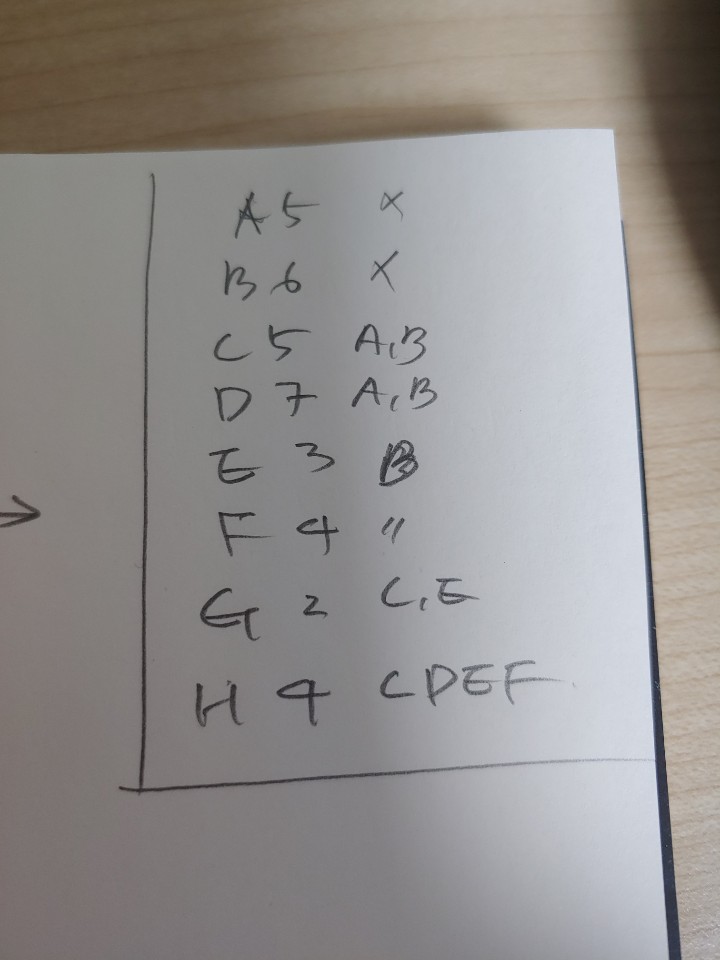 A 5 X
B 6 X
C 5 A,B
D 7 A,B
E 3 B
F 4 "
G 2 C,E
H 4 CDEF